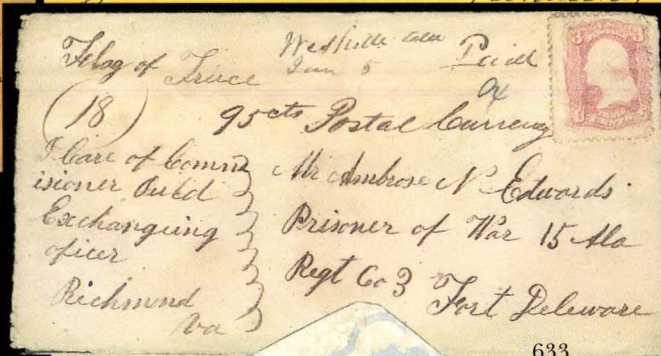 Flag of Truce
Jan 5
Paid
3 3
18
95cts Postal Currency
Care of Comm
isioner Ould
Exchangeing
oficer
Richmond
Va
Mr Ambrose N Edwards
Prisoner of War 15 Ala
Regt Co 3
Fort Deleware
633